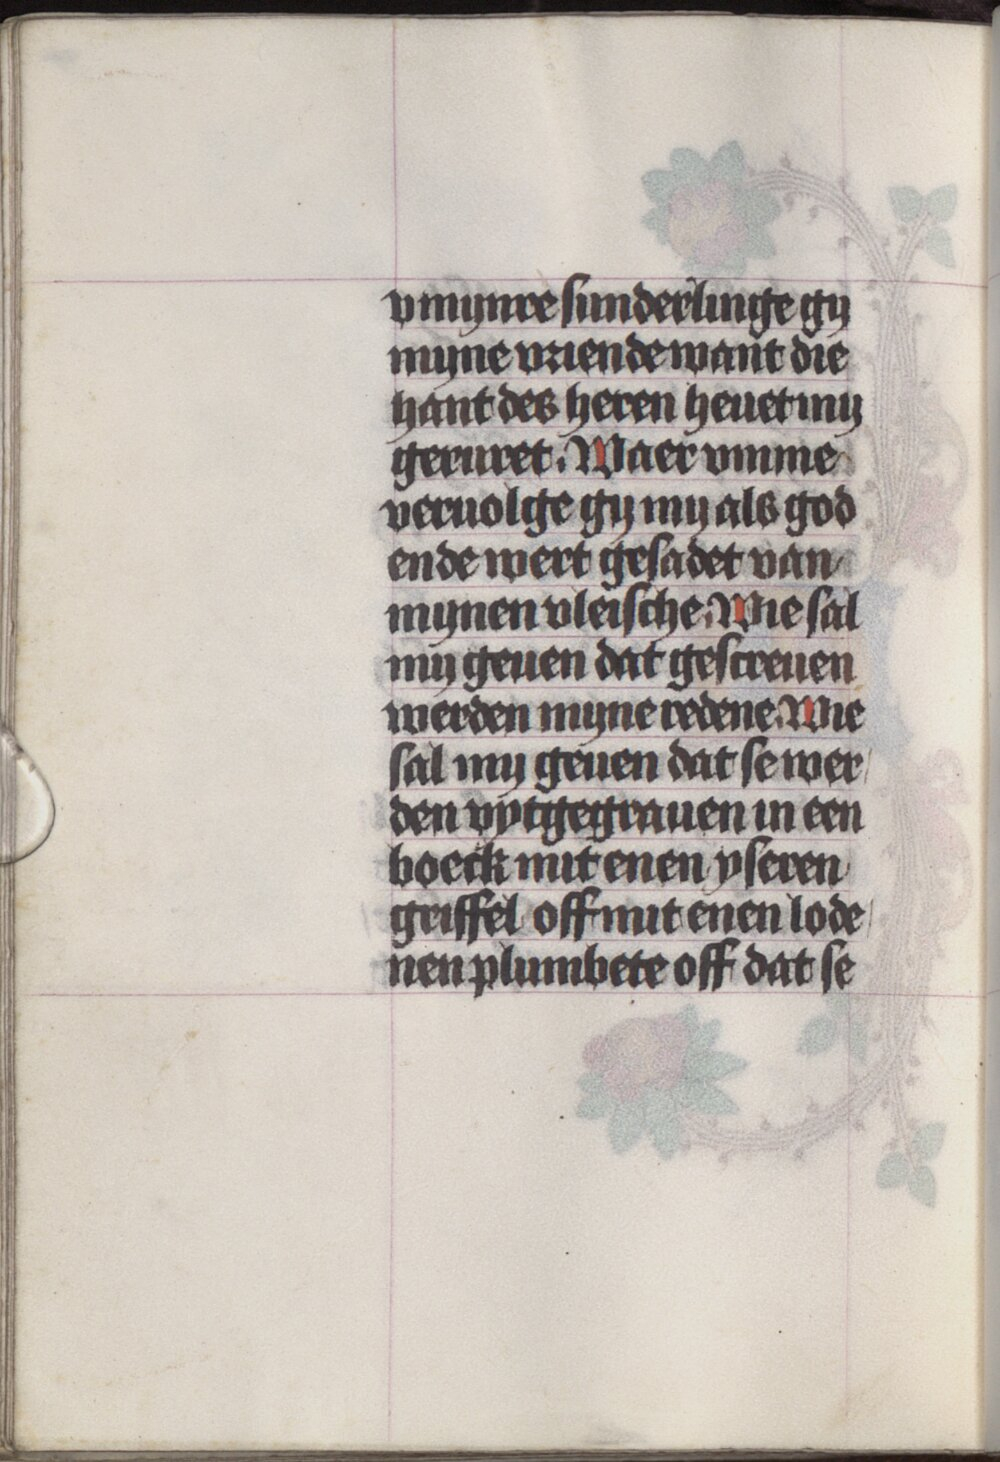 v mynre sunderlinge gy
myne vriende want die
hant des heren heuet my
geruret. Waer vmme
veruolge gy my als god
ende wert gesadet van
mynen vleische. Wie sal
my geuen dat gescreuen
werden myne redene. Wie
sal my geuen dat se wer
den vytgegrauen in een
boeck mit enen yseren
griffel off mit enen lode
nen plumbete off dat se